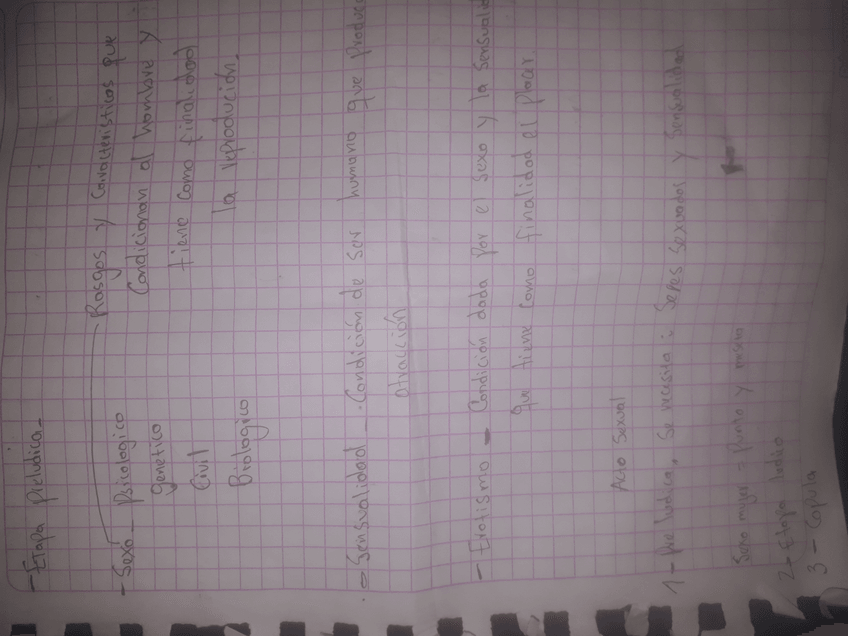 - Etapa preludica -
- Sexo - Psicologico
genetico
Civil
Biologico
Rasgos y Caracteristicas que
Condicionan al hombre y
tiene como finalidad
la reproducción.
- Sensualidad - Condición de ser humano que produce
atracción
- Erotismo - Condición dada por el sexo y la sensualid
que tiene como finalidad el placer
Acto Sexual
1 - Preludica. Se necesita: Seres sexuados y sensualidad
Sexo mujer =
2 - Etapa ludica
3 - Copula